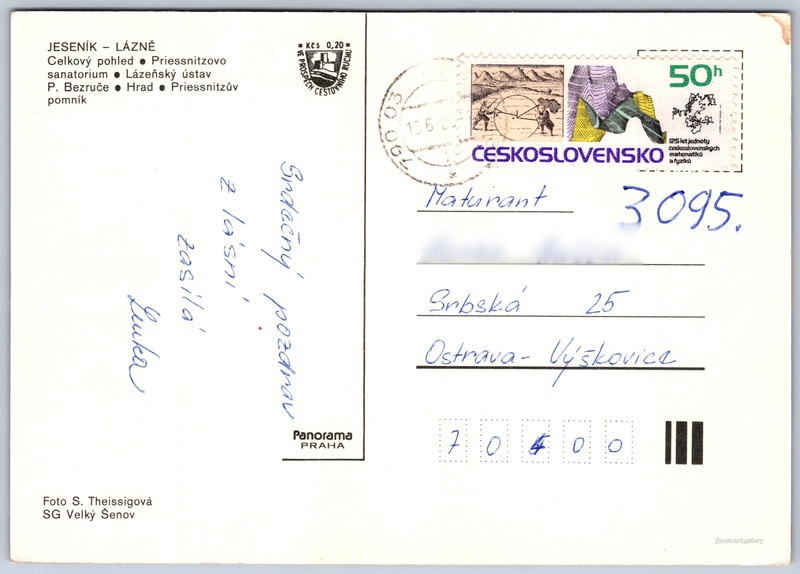 JESENÍK – LÁZNĚ
Celkový pohled ● Priessnitzovo
sanatorium ● Lázeňský ústav
P. Bezruče ● Hrad ● Priessnitzův
pomník
Kčs 0,20
VE PROSPĚCH CESTOVNÍHO RUCHU
790 03
50h
125 let jednoty
československých
matematiků
a fyziků
ČESKOSLOVENSKO
Srdečný pozdrav
z lásní
zasílá
Lenka
Maturant
3095.
Srbská 25
Ostrava- Výškovice
70400
Panorama
PRAHA
Foto S. Theissigová
SG Velký Šenov
postcard.gallery